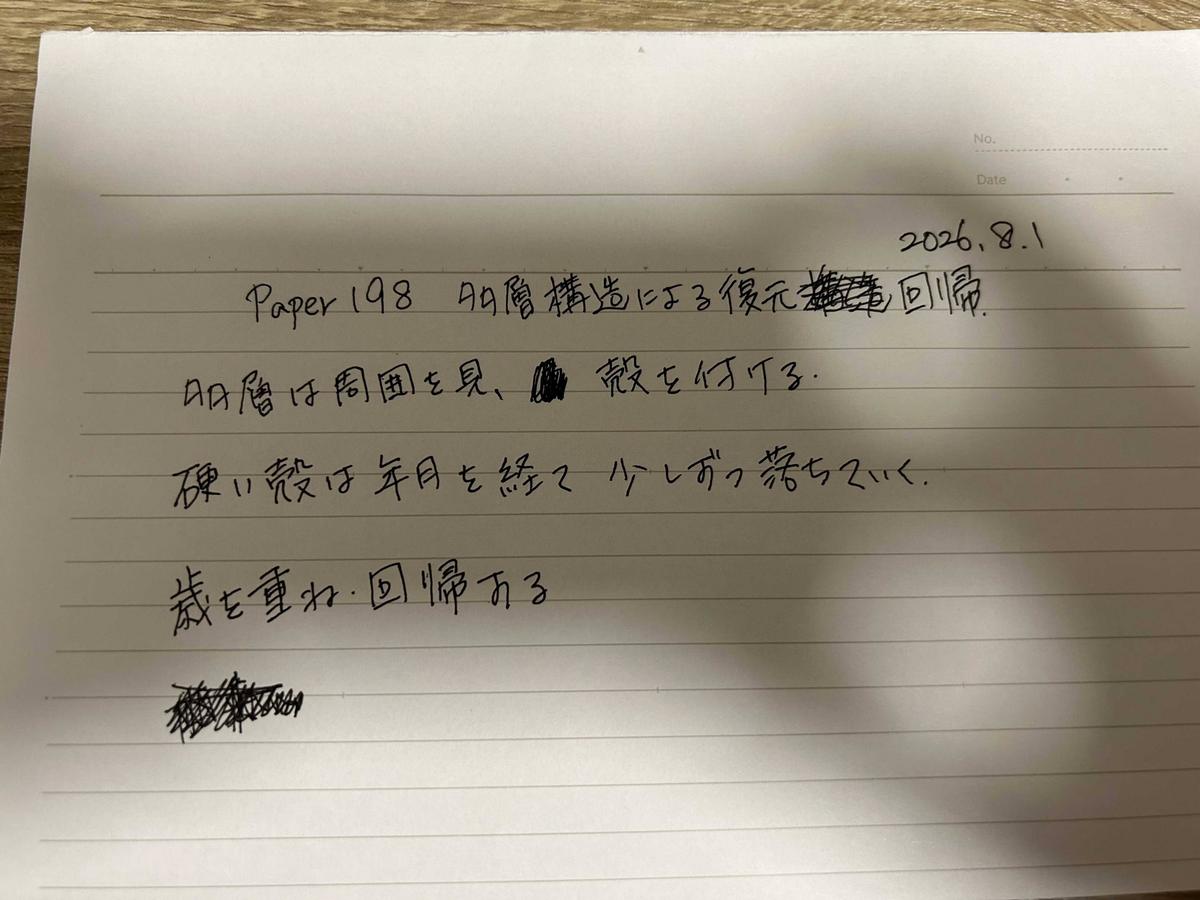 No.
Date
2026.8.1
Paper 198 多層構造による復元 回帰.
多層は周囲を見、 殻を付ける.
硬い殻は年月を経て 少しずつ落ちていく.
歳を重ね.回帰する